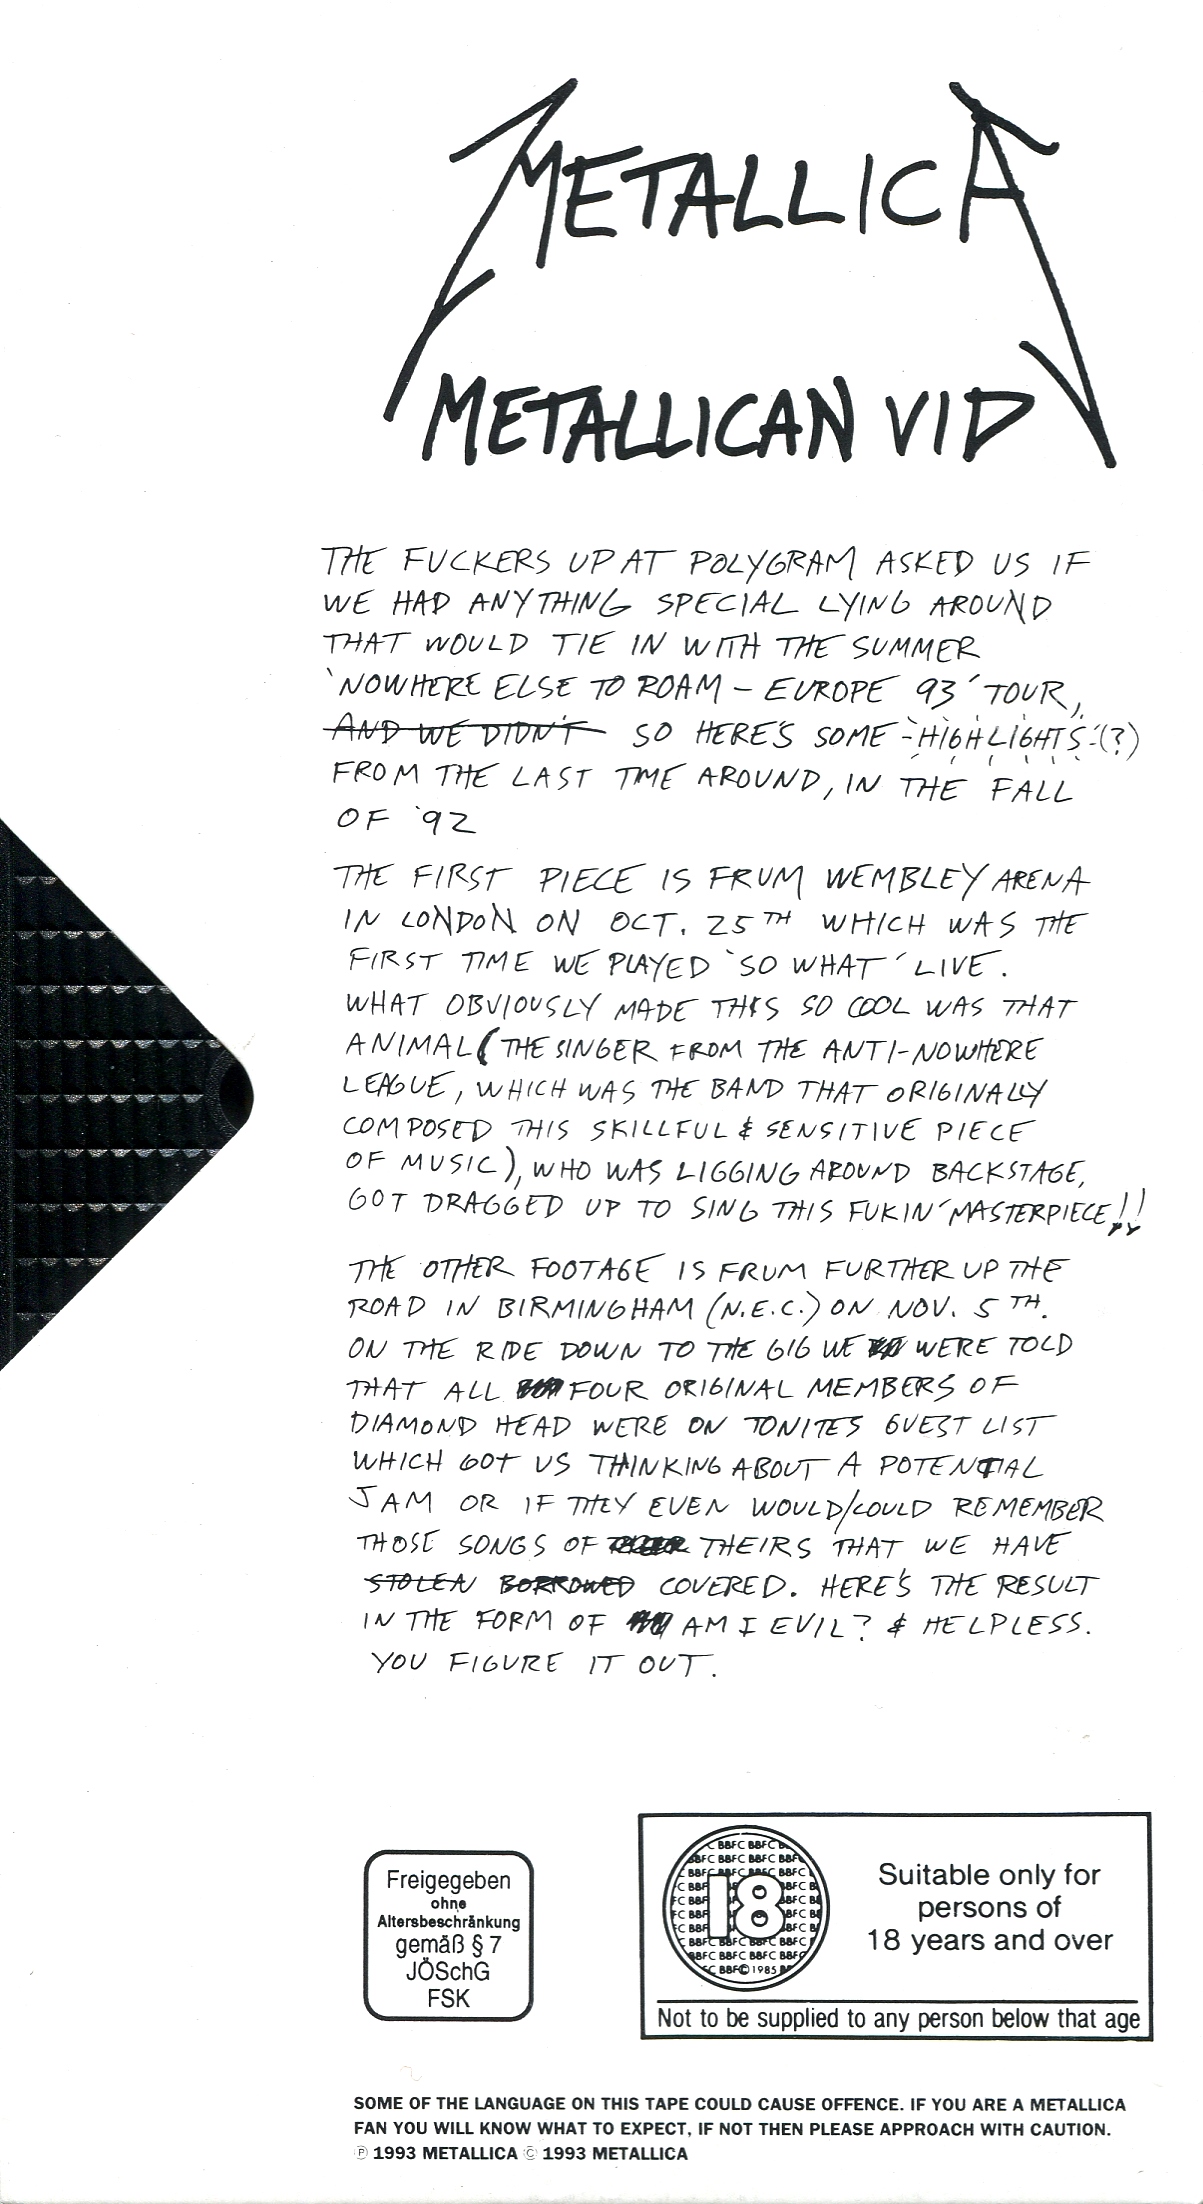 METALLICA
METALLICAN VID
THE FUCKERS UP AT POLYGRAM ASKED US IF
WE HAD ANYTHING SPECIAL LYING AROUND
THAT WOULD TIE IN WITH THE SUMMER
'NOWHERE ELSE TO ROAM - EUROPE 93' TOUR,
AND WE DIDN'T SO HERE'S SOME HIGHLIGHTS (?)
FROM THE LAST TIME AROUND, IN THE FALL
OF '92
THE FIRST PIECE IS FRUM WEMBLEY ARENA
IN LONDON ON OCT. 25TH WHICH WAS THE
FIRST TIME WE PLAYED 'SO WHAT' LIVE.
WHAT OBVIOUSLY MADE THIS SO COOL WAS THAT
ANIMAL (THE SINGER FROM THE ANTI-NOWHERE
LEAGUE, WHICH WAS THE BAND THAT ORIGINALLY
COMPOSED THIS SKILLFUL & SENSITIVE PIECE
OF MUSIC), WHO WAS LIGGING AROUND BACKSTAGE,
GOT DRAGGED UP TO SING THIS FUKIN' MASTERPIECE!!
THE OTHER FOOTAGE IS FRUM FURTHER UP THE
ROAD IN BIRMINGHAM (N.E.C.) ON NOV. 5TH.
ON THE RIDE DOWN TO THE GIG WE WERE TOLD
THAT ALL FOUR ORIGINAL MEMBERS OF
DIAMOND HEAD WERE ON TONITES GUEST LIST
WHICH GOT US THINKING ABOUT A POTENTIAL
JAM OR IF THEY EVEN WOULD/COULD REMEMBER
THOSE SONGS OF THEIRS THAT WE HAVE
STOLEN BORROWED COVERED. HERE'S THE RESULT
IN THE FORM OF AM I EVIL? & HELPLESS.
YOU FIGURE IT OUT.
Freigegeben
ohne
Altersbeschränkung
gemäß § 7
JÖSchG
FSK
18
BBFC © 1985
Suitable only for
persons of
18 years and over
Not to be supplied to any person below that age
SOME OF THE LANGUAGE ON THIS TAPE COULD CAUSE OFFENCE. IF YOU ARE A METALLICA
FAN YOU WILL KNOW WHAT TO EXPECT, IF NOT THEN PLEASE APPROACH WITH CAUTION.
℗ 1993 METALLICA © 1993 METALLICA